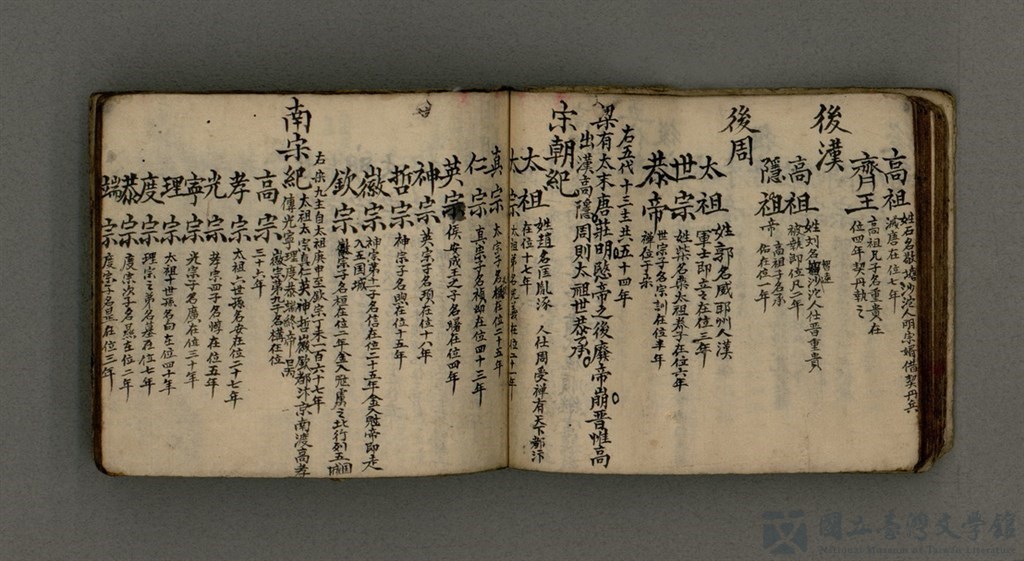 高祖 姓石名敬塘沙沱人明宗婿借契丹兵
滅唐在位七年
齊王 高祖兄子名重貴在
位四年契丹執之
後漢
高祖 姓刘名智遠沙沱人仕晋重貴
被執即位凡二年
隱祖 帝 高祖子名承
佑在位一年
後周
太祖 姓郭名威邢州人漢
軍士即立之在位三年
世宗 姓柴名榮太祖養子在位六年
恭帝 世宗子名宗訓在位半年
禅位于宋
右五代十三主共五十四年
梁有太末唐莊明愍帝之後廢帝崩晋惟高
出漢高隱周則太祖世恭承
宋朝紀
太祖 姓趙名匡胤涿人仕周受禅有天下都汴
在位十七年
太宗 太祖弟名光義在位二十一年
真宗 太宗子名恒在位二十五年
仁宗 真宗子名禎在位四十三年
英宗 侯安成王之子名曙在位四年
神宗 英宗子名頊在位十八年
哲宗 神宗子名煦在位十五年
徽宗 神宗第十一子名佶在位二十五年金人陷帝即走
入五国城
欽宗 徽宗子名桓在位二年金人陷虜之北行列五國
右宋九主自太祖庚申至欽宗丁未一百六十七年
南宗紀 太祖太宗真仁英神哲徽欽都汴京南渡高孝
傳光寧理度恭端終帝昺
高宗 徽宗第九子名構在位
三十六年
孝宗 太祖六世孫名安在位二十七年
光宗 孝宗四子名惇在位五年
寧宗 光宗子名廣在位三十年
理宗 太祖十世孫名昀在位四十年
度宗 理宗之弟子名基在位七年
恭宗 度宗次子名㬎在位二年
端宗 度宗子名昰在位三年
國立臺灣文學館
National Museum of Taiwan Literature